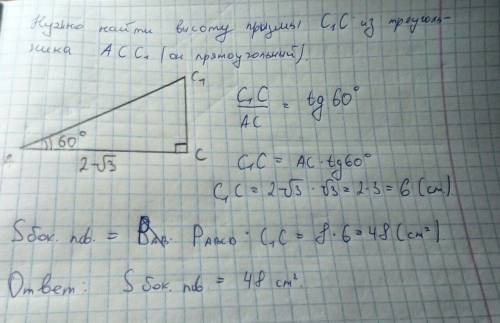 Нужно найти высоту призмы C₁C из треуголь-
ника ACC₁ (он прямоугольный).
C₁
60°
C
2√3
C₁C / AC = tg 60°
C₁C = AC · tg60°
C₁C = 2√3 · √3 = 2·3 = 6 (см)
Sбок. пов. = PABCD · C₁C = 8 · 6 = 48 (см²)
Ответ: Sбок. пов. = 48 см².